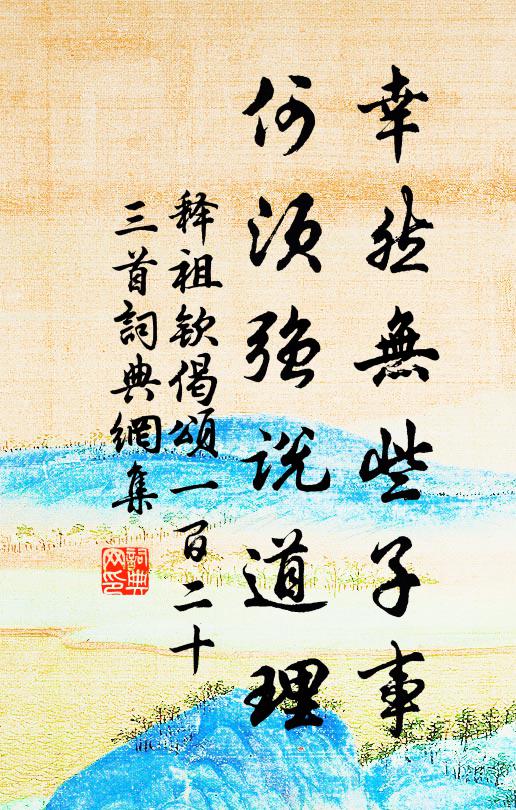 幸然無些子事
何須強說道理
释祖钦偈頌一百二十
三首詞典網集
詞典
网印